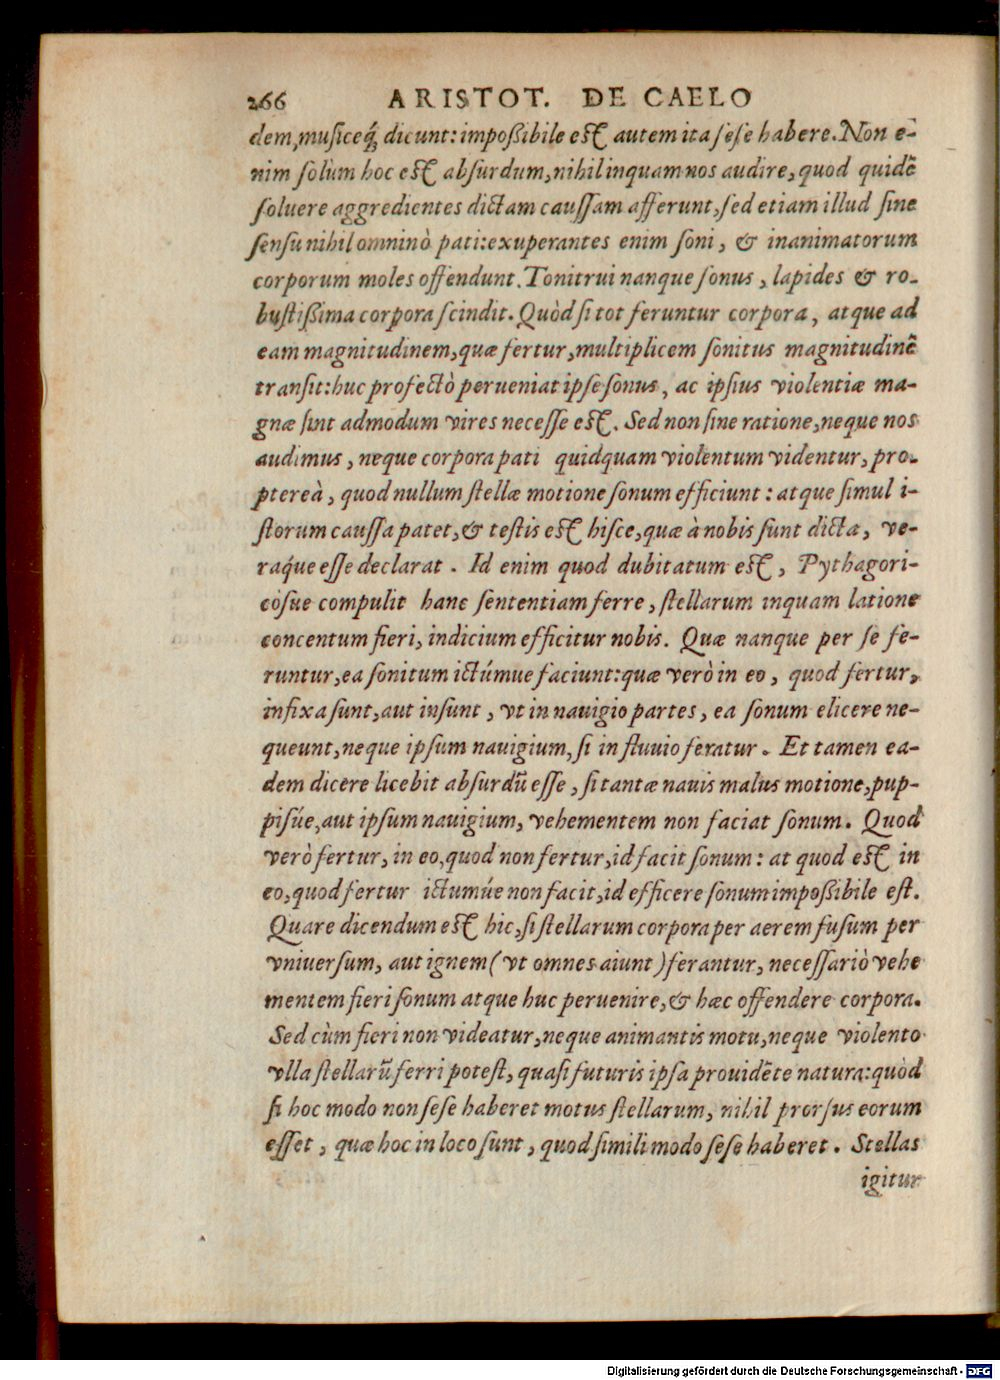 266 ARISTOT. DE CAELO
dem, musiceq́; dicunt: impoßibile est autem ita sese habere. Non e-
nim solùm hoc est absurdum, nihil inquam nos audire, quod quidē
soluere aggredientes dictam caussam afferunt, sed etiam illud sine
sensu nihil omninò pati: exuperantes enim soni, & inanimatorum
corporum moles offendunt. Tonitrui nanque sonus, lapides & ro-
bustißima corpora scindit. Quòd si tot feruntur corpora, atque ad
eam magnitudinem, quæ fertur, multiplicem sonitus magnitudinē
transit: huc profectò perueniat ipse sonus, ac ipsius violentiæ ma-
gnæ sint admodum vires necesse est. Sed non sine ratione, neque nos
audimus, neque corpora pati quidquam violentum videntur, pro-
ptereà, quod nullum stellæ motione sonum efficiunt: atque simul i-
storum caussa patet, & testis est hisce, quæ à nobis sunt dicta, ve-
raq́ue esse declarat. Id enim quod dubitatum est, Pythagori-
cósue compulit hanc sententiam ferre, stellarum inquam latione
concentum fieri, indicium efficitur nobis. Quæ nanque per se fe-
runtur, ea sonitum ictúmue faciunt: quæ verò in eo, quod fertur,
infixa sunt, aut insunt, vt in nauigio partes, ea sonum elicere ne-
queunt, neque ipsum nauigium, si in fluuio feratur. Et tamen ea-
dem dicere licebit absurdū esse, si tantæ nauis malus motione, pup-
pisúe, aut ipsum nauigium, vehementem non faciat sonum. Quod
verò fertur, in eo, quod non fertur, id facit sonum: at quod est in
eo, quod fertur ictumúe non facit, id efficere sonum impoßibile est.
Quare dicendum est hic, si stellarum corpora per aerem fusum per
vniuersum, aut ignem (vt omnes aiunt) ferantur, necessariò vehe
mentem fieri sonum atque huc peruenire, & hæc offendere corpora.
Sed cùm fieri non videatur, neque animantis motu, neque violento
vlla stellarū ferri potest, quasi futuris ipsa prouidēte natura: quòd
si hoc modo non sese haberet motus stellarum, nihil prorsus eorum
esset, quæ hoc in loco sunt, quod simili modo sese haberet. Stellas
igitur
Digitalisierung gefördert durch die Deutsche Forschungsgemeinschaft - DFG